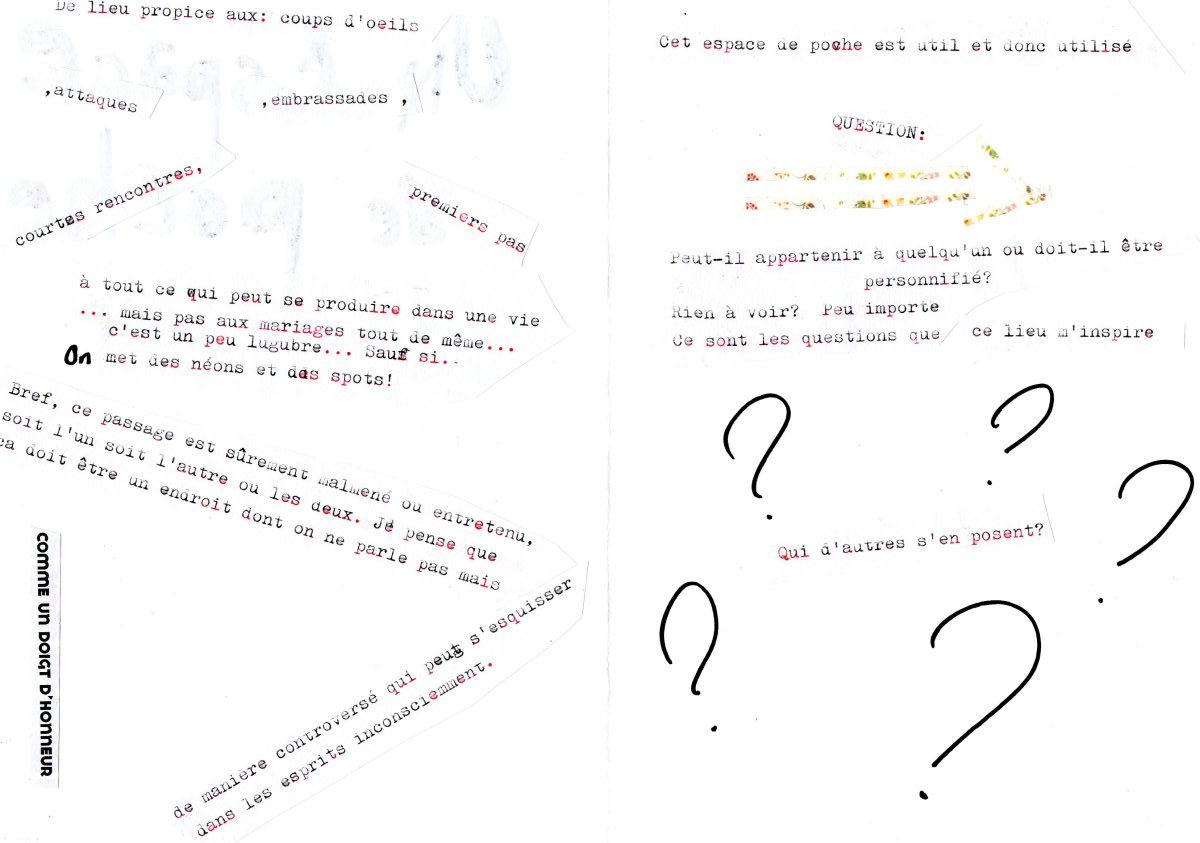 De lieu propice aux: coups d'oeils
,attaques
,embrassades ,
courtes rencontres,
premiers pas
à tout ce qui peut se produire dans une vie
... mais pas aux mariages tout de même...
c'est un peu lugubre... Sauf si..
On met des néons et des spots!
Bref, ce passage est sûrement malmené ou entretenu,
soit l'un soit l'autre ou les deux. Je pense que
ça doit être un endroit dont on ne parle pas mais
de manière controversé qui peut s'esquisser
dans les esprits inconsciemment.
COMME UN DOIGT D'HONNEUR
Cet espace de poche est util et donc utilisé
QUESTION:
Peut-il appartenir à quelqu'un ou doit-il être
personnifié?
Rien à voir? Peu importe
Ce sont les questions que ce lieu m'inspire
? ? ?
Qui d'autres s'en posent?
? ?